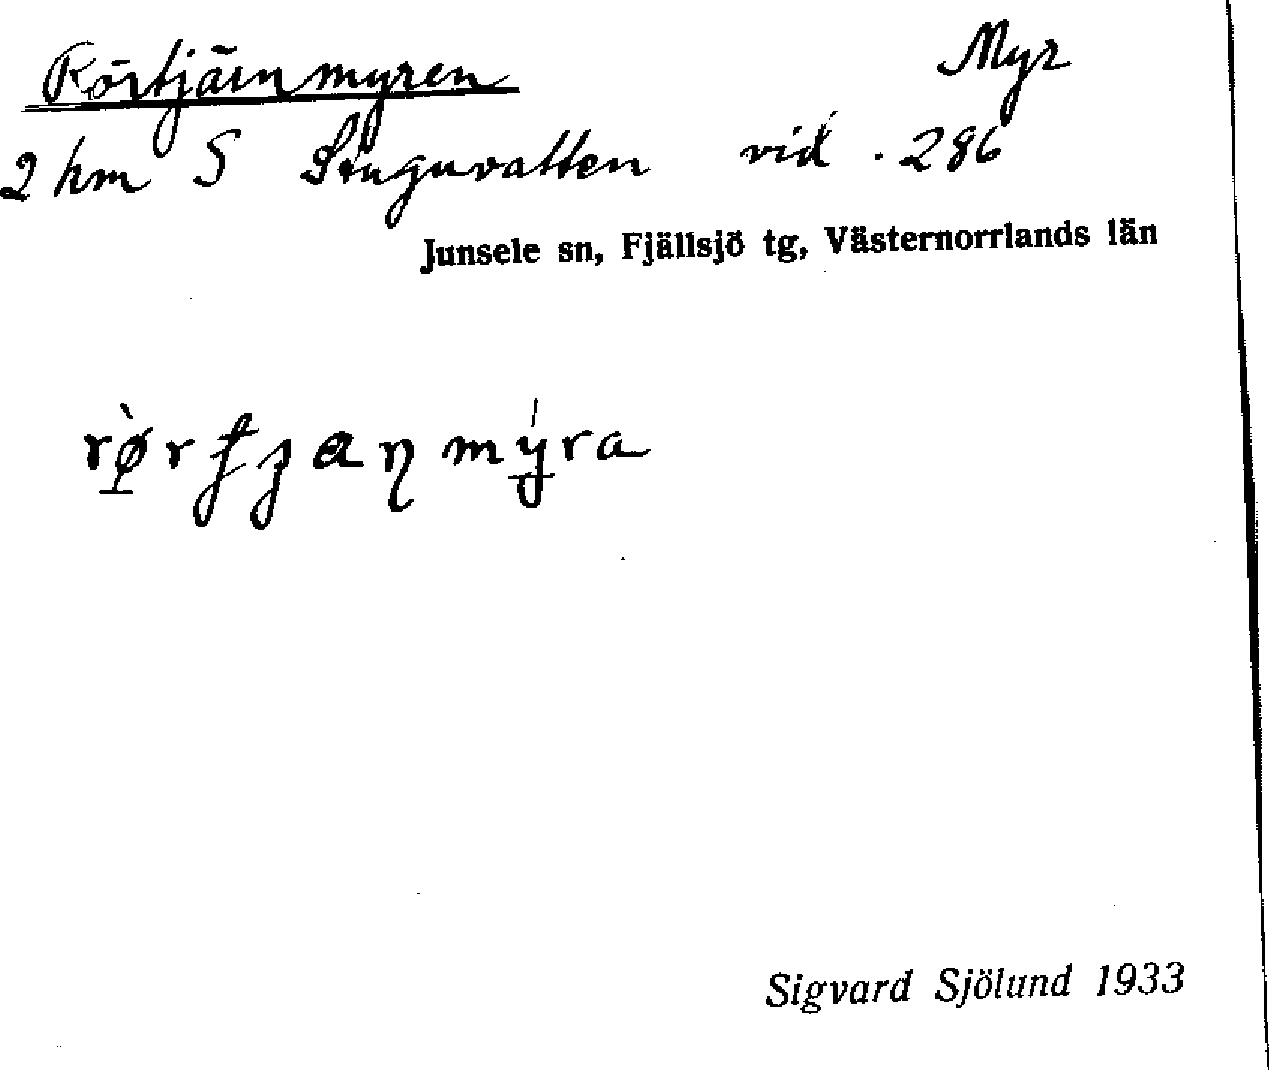 Rörtjärnmyren Myr
2 km S Stuguvatten vid . 286
Junsele sn, Fjällsjö tg, Västernorrlands län
Sigvard Sjölund 1933